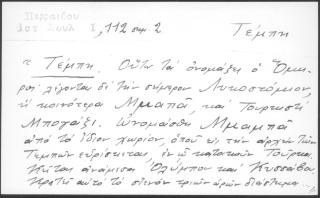 Περραιδου
Ιστ Σουλ I, 112 σημ. 2 Τέμπη
"Τέμπη. Οὕτω τὰ ὀνομάζει ὁ Ὅμη-
ρος, λέγονται δὲ τὴν σήμερον Λυκοστόμιον,
ἢ κοινότερα Μπαμπᾶ, καὶ Τουρκιστὶ
Μπογάζι. Ὠνομάσθη Μπαμπᾶ
ἀπὸ τὸ ἴδιον χωρίον, ὅπου εἰς τὴν ἀρχὴν τῶν
Τεμπῶν εὑρίσκεται, ἐν ᾧ κατοικοῦν Τοῦρκοι.
Κεῖται ἀνάμεσα Ὀλύμπου καὶ Κυσσάβου.
Κρατεῖ αὐτὸ τὸ στενὸν τριῶν ὡρῶν διάστημα..."